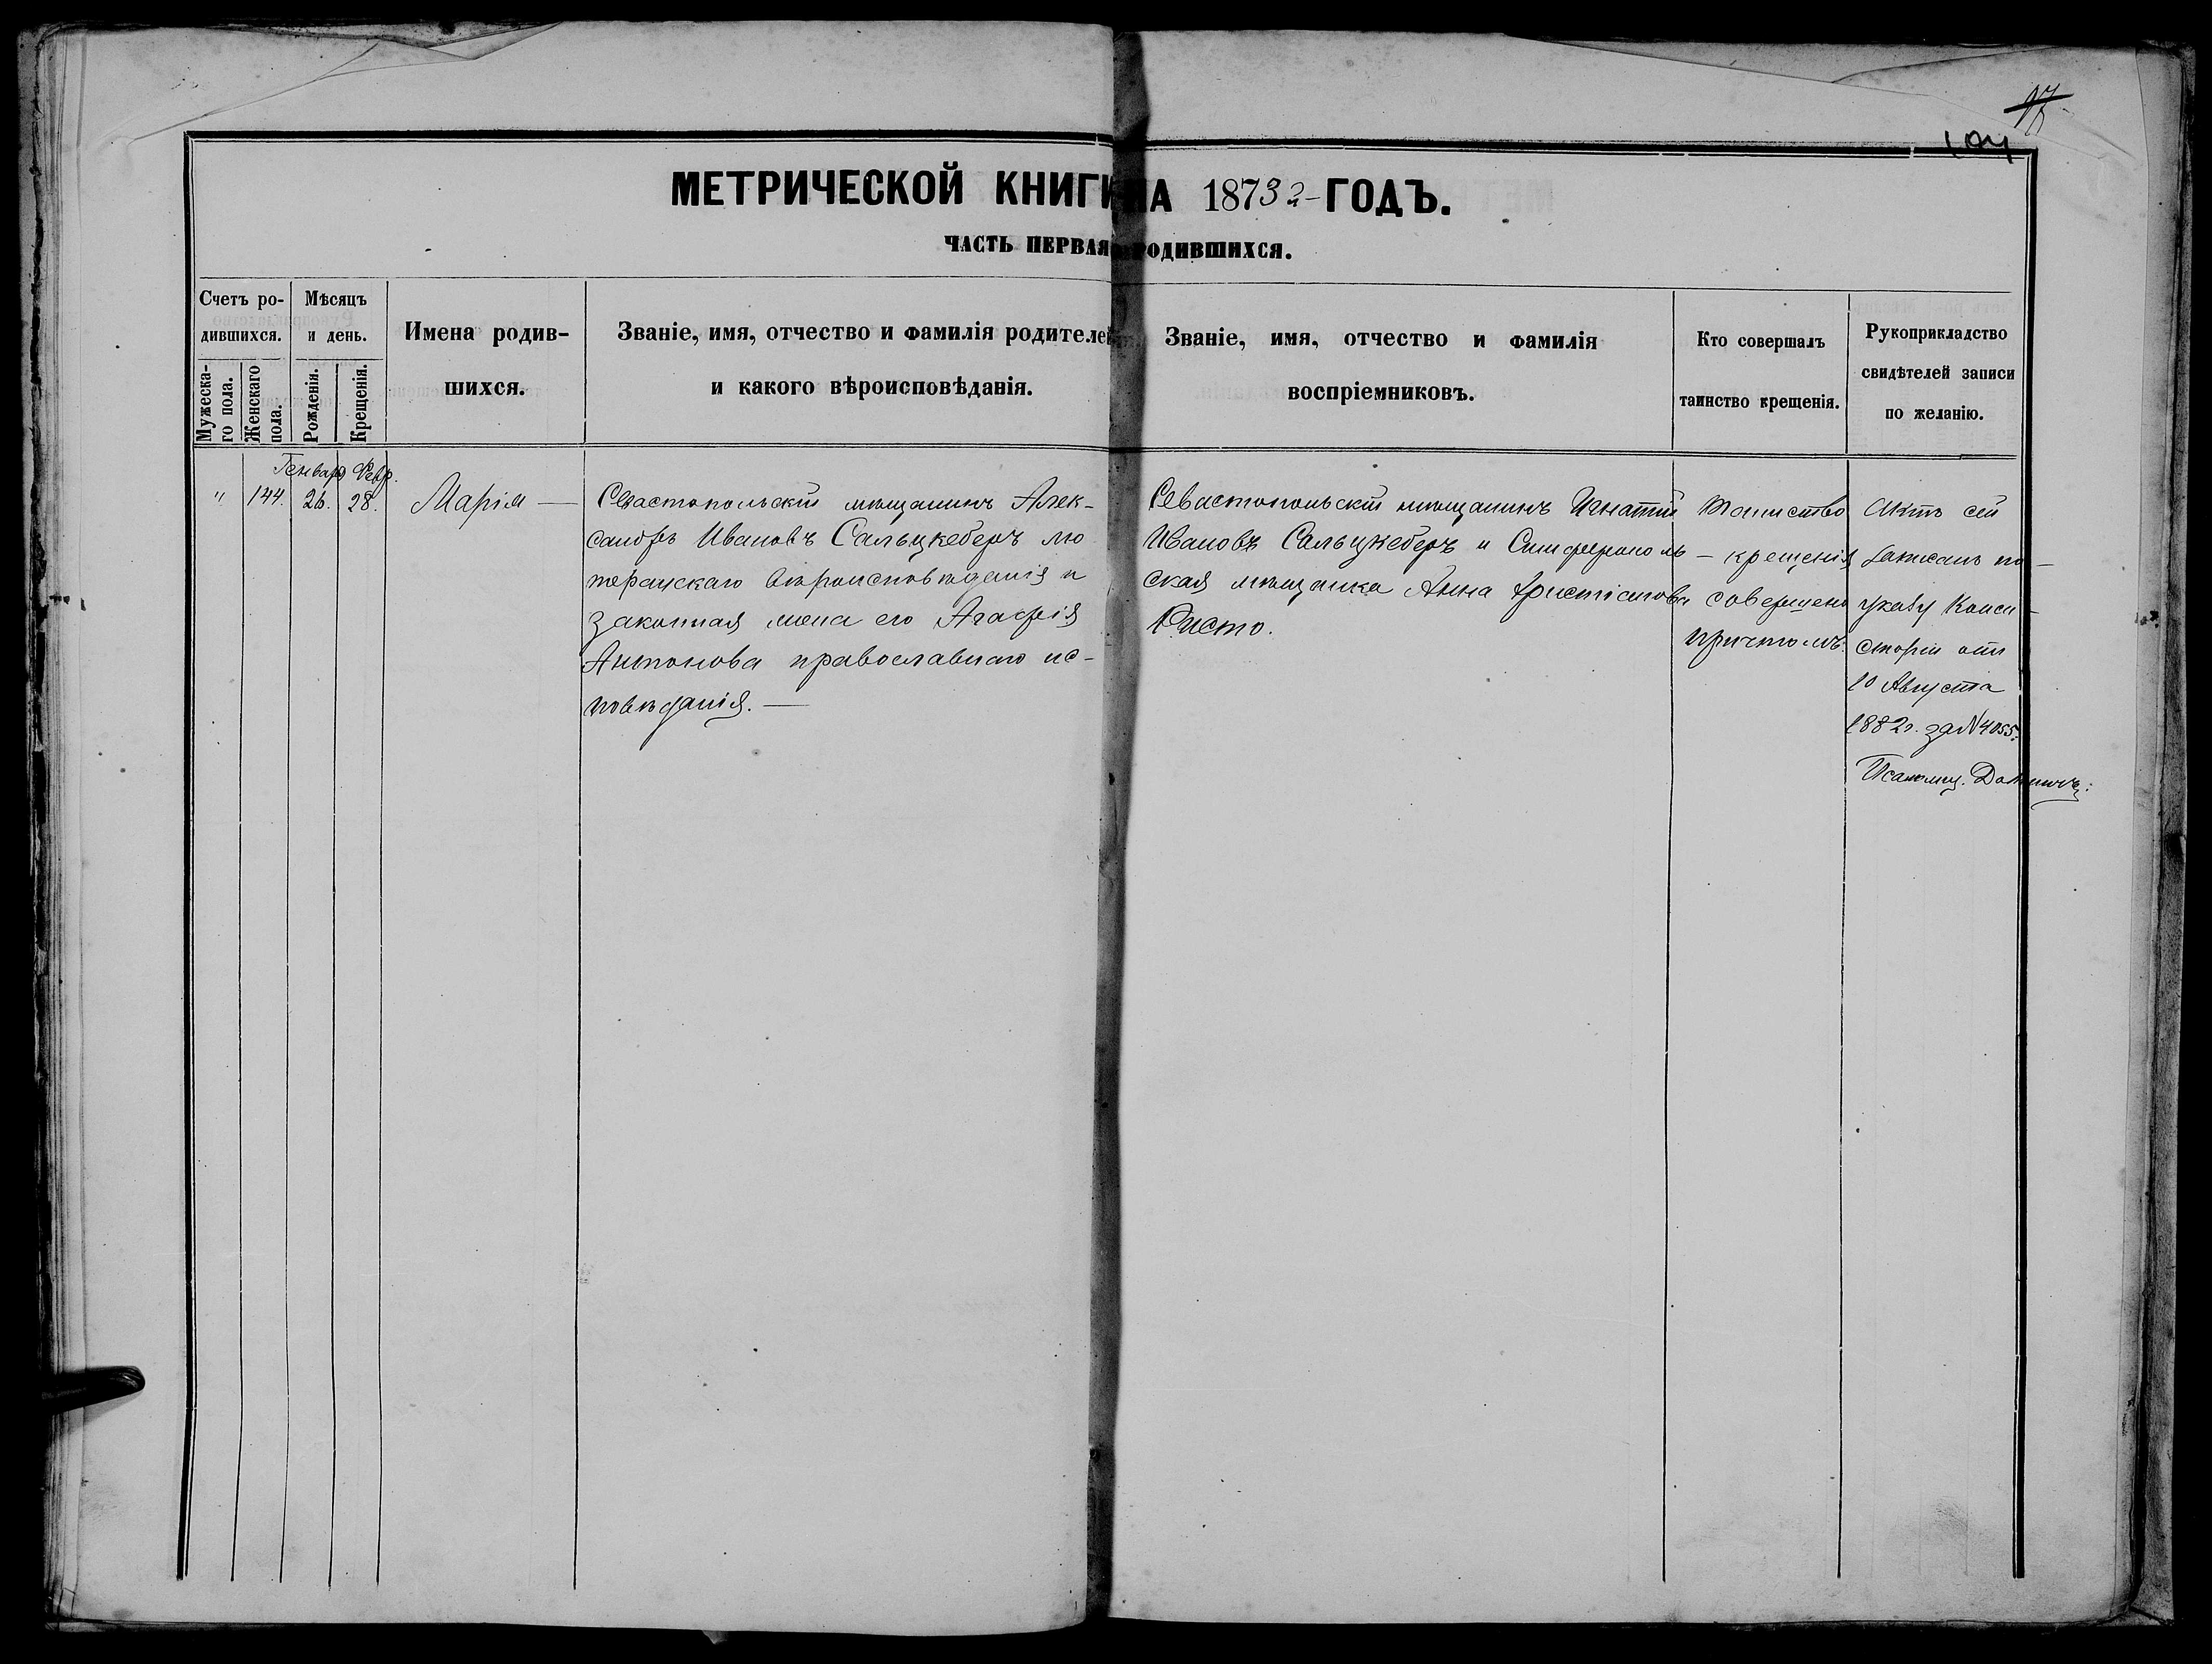 17
104
МЕТРИЧЕСКОЙ КНИГИ НА 1873 й ГОДЪ.
ЧАСТЬ ПЕРВАЯ О РОДИВШИХСЯ.
Счетъ ро-
дившихся.
Мужеска-
го пола.
Женскаго
пола.
Мѣсяцъ
и день.
Рожденія.
Крещенія.
Имена родив-
шихся.
Званіе, имя, отчество и фамилія родителей
и какого вѣроисповѣданія.
Званіе, имя, отчество и фамилія
воспріемниковъ.
Кто совершалъ
таинство крещенія.
Рукоприкладство
свидѣтелей записи
по желанію.
Генваря Февр.
" 144. 26. 28.
Марія —
Севастопольскій мѣщанинъ Алек-
сандръ Ивановъ Сальцкеберъ лю
теранскаго вѣроисповѣданія и
законная жена его Агафія
Антонова православнаго ис-
повѣданія. —
Севастопольскій мѣщанинъ Игнатій
Ивановъ Сальцкеберъ и Симферополь-
ская мѣщанка Анна Христіанова
Ристо.
Таинство
крещенія
совершено
причтомъ.
Актъ сей
записанъ по
указу Конси-
сторіи отъ
10 Августа
1882 г. за N 4055.
Псаломщ.